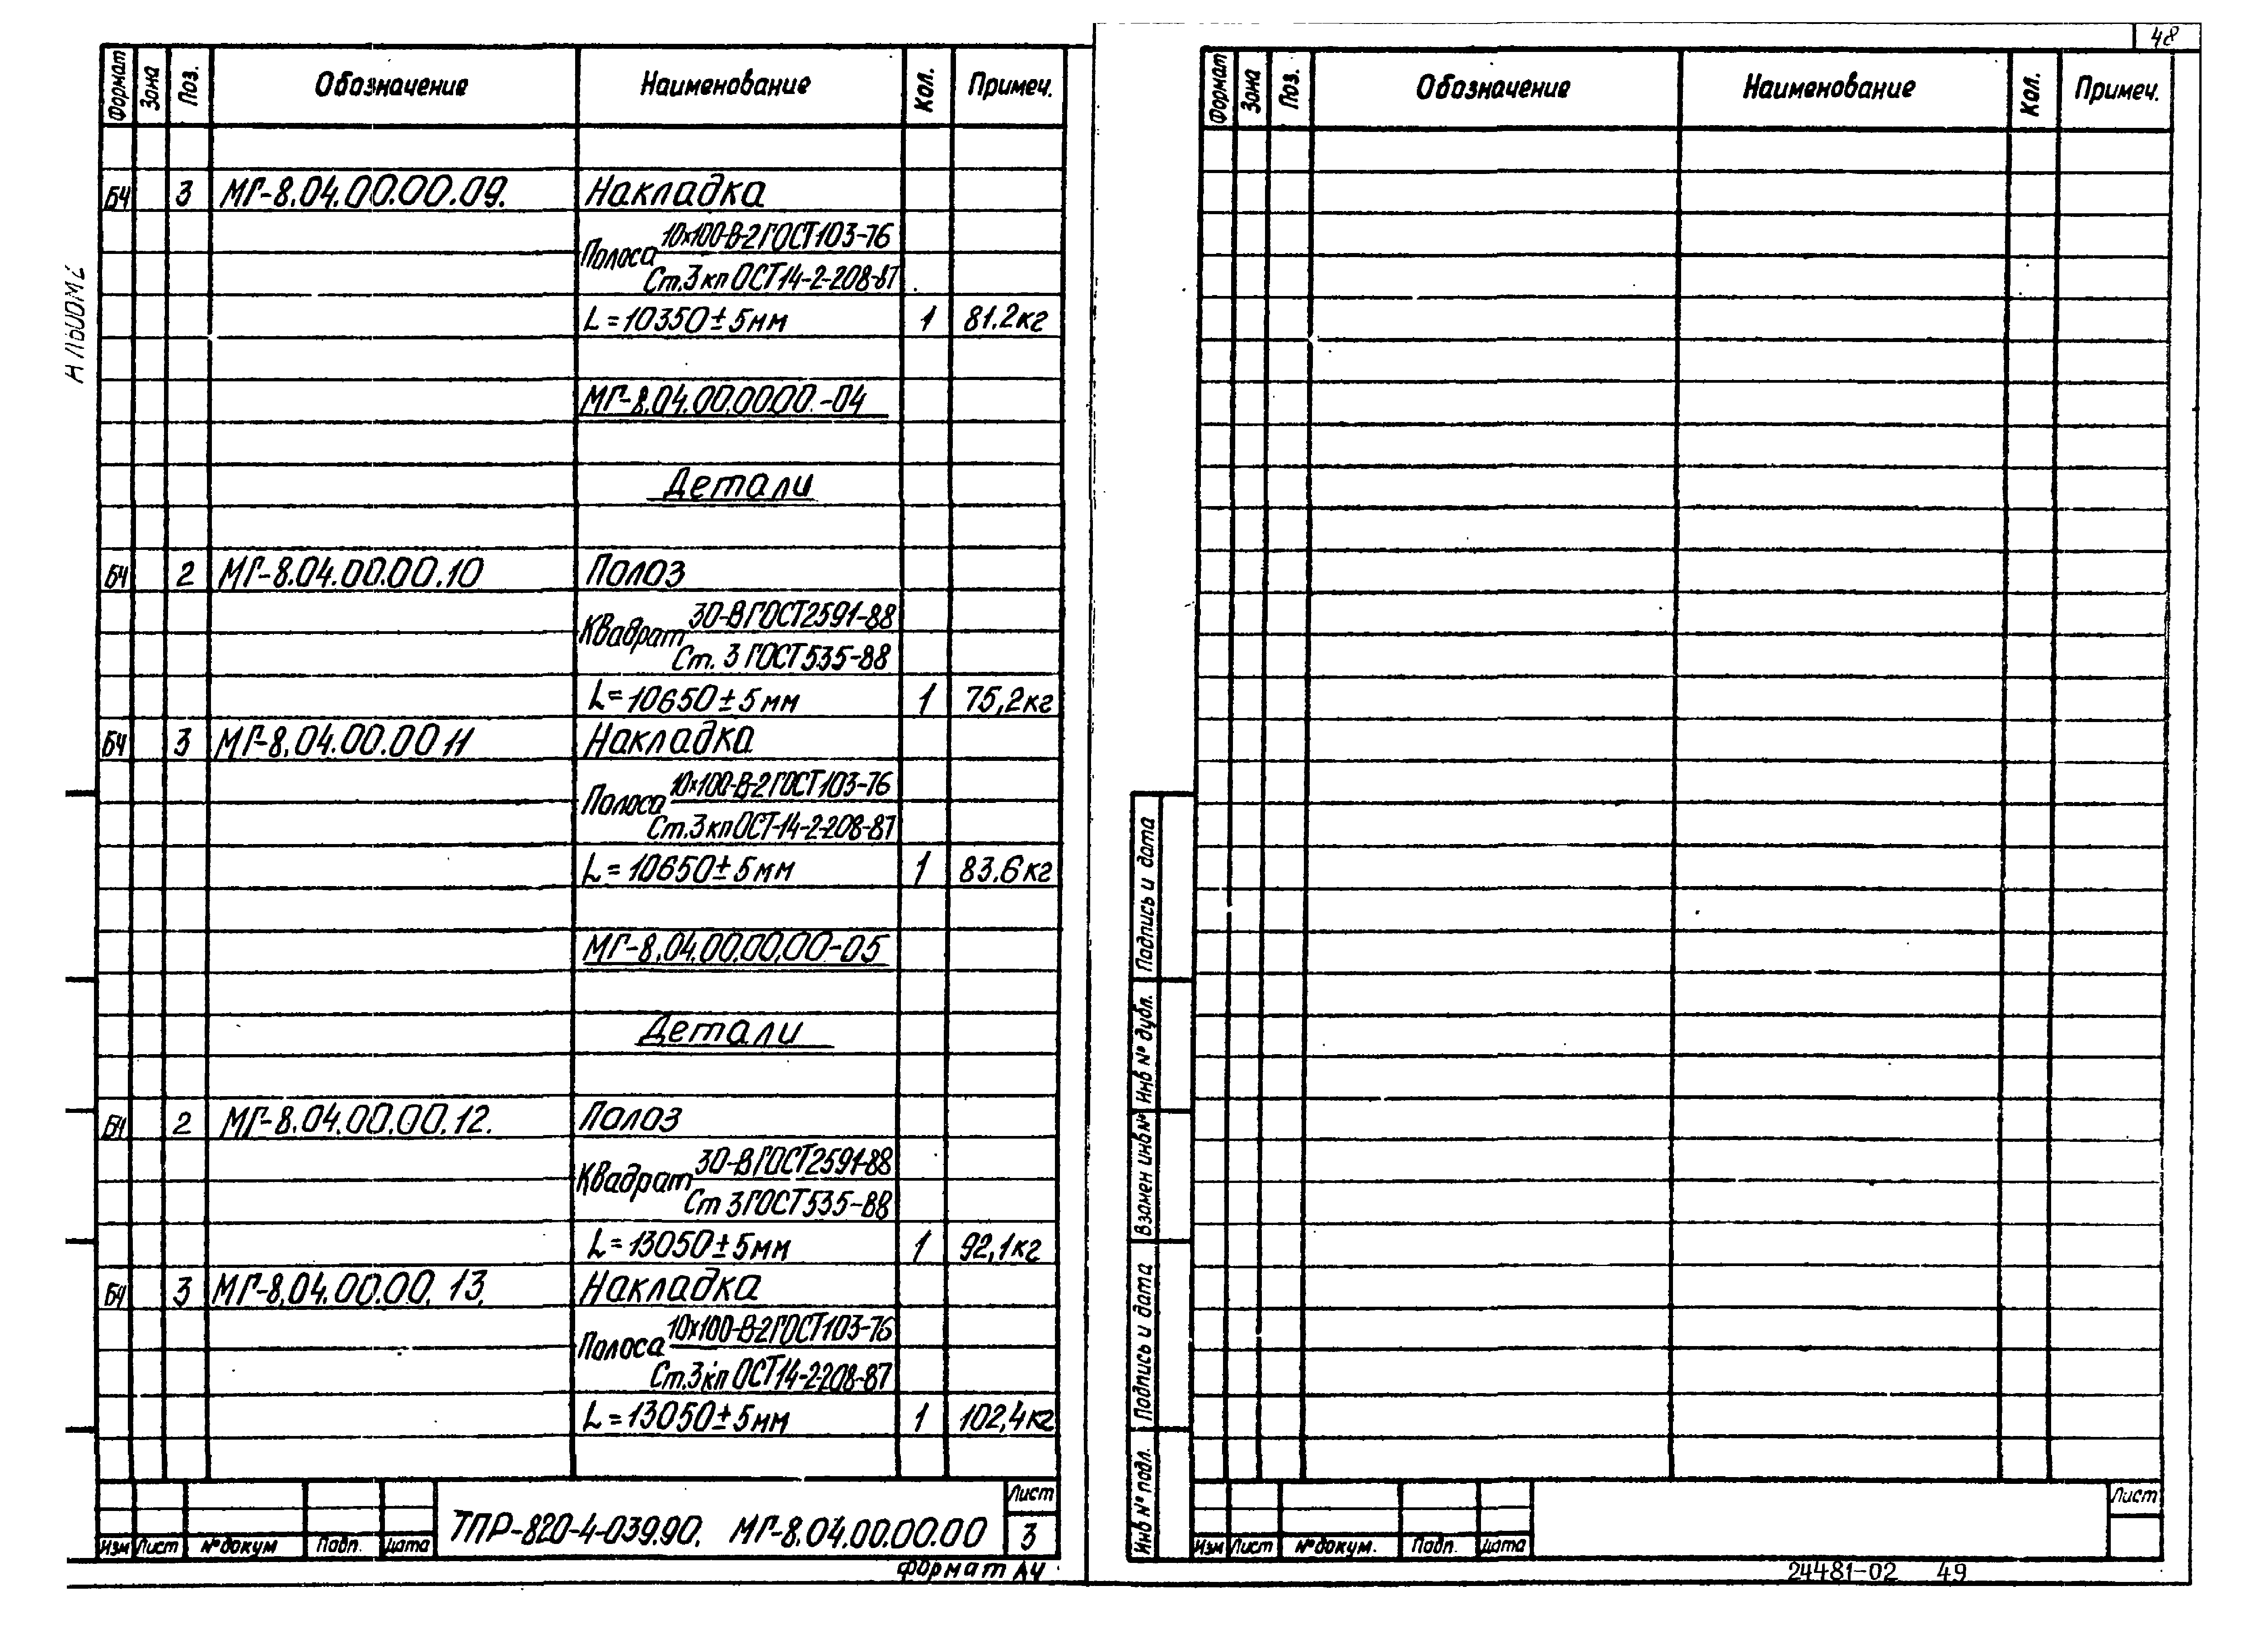 Формат Зона Поз. Обозначение Наименование Кол. Примеч.
БЧ 3 МГ-8.04.00.00.09. Накладка
Полоса 10х100-В-2 ГОСТ 103-76
Ст.3кп ОСТ 14-2-208-87
L=10350±5мм 1 81.2кг
МГ-8.04.00.00.00.-04
Детали
БЧ 2 МГ-8.04.00.00.10 Полоз
Квадрат 30-В ГОСТ 2591-88
Ст. 3 ГОСТ 535-88
L=10650±5мм 1 75,2кг
БЧ 3 МГ-8.04.00.00 11 Накладка
Полоса 10х100-В-2 ГОСТ 103-76
Ст.3кп ОСТ-14-2-208-87
L=10650±5мм 1 83.6кг
МГ-8.04.00.00.00-05
Детали
БЧ 2 МГ-8.04.00.00.12. Полоз
Квадрат 30-В ГОСТ 2591-88
Ст 3 ГОСТ 535-88
L=13050±5мм 1 92,1кг
БЧ 3 МГ-8.04.00.00.13. Накладка
Полоса 10х100-В-2 ГОСТ 103-76
Ст.3кп ОСТ 14-2-208-87
L=13050±5мм 1 102,4кг
Изм Лист № докум Подп. Дата
ТПР-820-4-039.90. МГ-8.04.00.00.00
Лист
3
Формат А4
48
Формат Зона Поз. Обозначение Наименование Кол. Примеч.
Подпись и дата
Инв № дубл.
Взамен инв №
Подпись и дата
Инв № подл.
Изм Лист № докум. Подп. Дата
Лист
24481-02 49